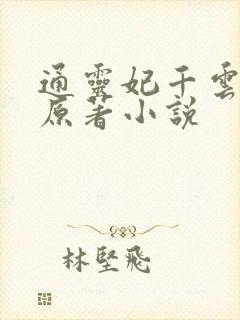 通靈妃千雲
原著小説
林堅飛